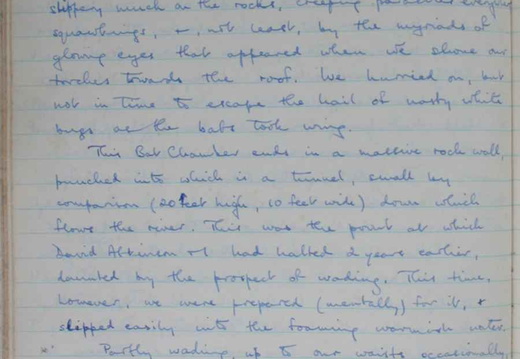 slippery muck on the rocks, creeping parasites everywhere
squawkings, +, not least, by the myriads of
glowing eyes that appeared when we shone our
torches towards the roof. We hurried on, but
not in time to escape the hail of nasty white
bugs as the bats took wing.
This Bat Chamber ends in a massive rock wall,
punched into which is a tunnel, small by
comparison (20 feet high, 10 feet wide) down which
flows the river. This was the point at which
David Atkinson + I had halted 2 years earlier,
daunted by the prospect of wading. This time,
however, we were prepared (mentally) for it, +
slipped easily into the foaming warmish water.
Partly wading, up to our waists occasionally,